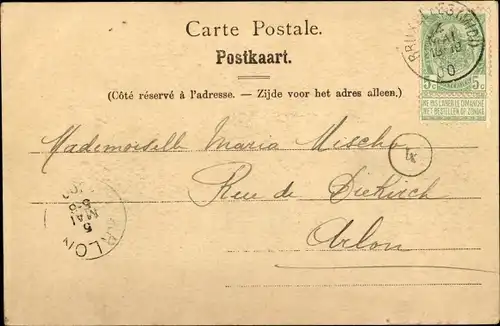 Carte Postale.
Postkaart.
(Côté réservé à l'adresse. — Zijde voor het adres alleen.)
BRUXELLES (MIDI)
MAI
00
5c 5c
NE PAS LIVRER LE DIMANCHE
NIET BESTELLEN OP ZONDAG
Mademoiselle Maria Mischo
Rue de Diekirch
Arlon
ARLON
5
MAI